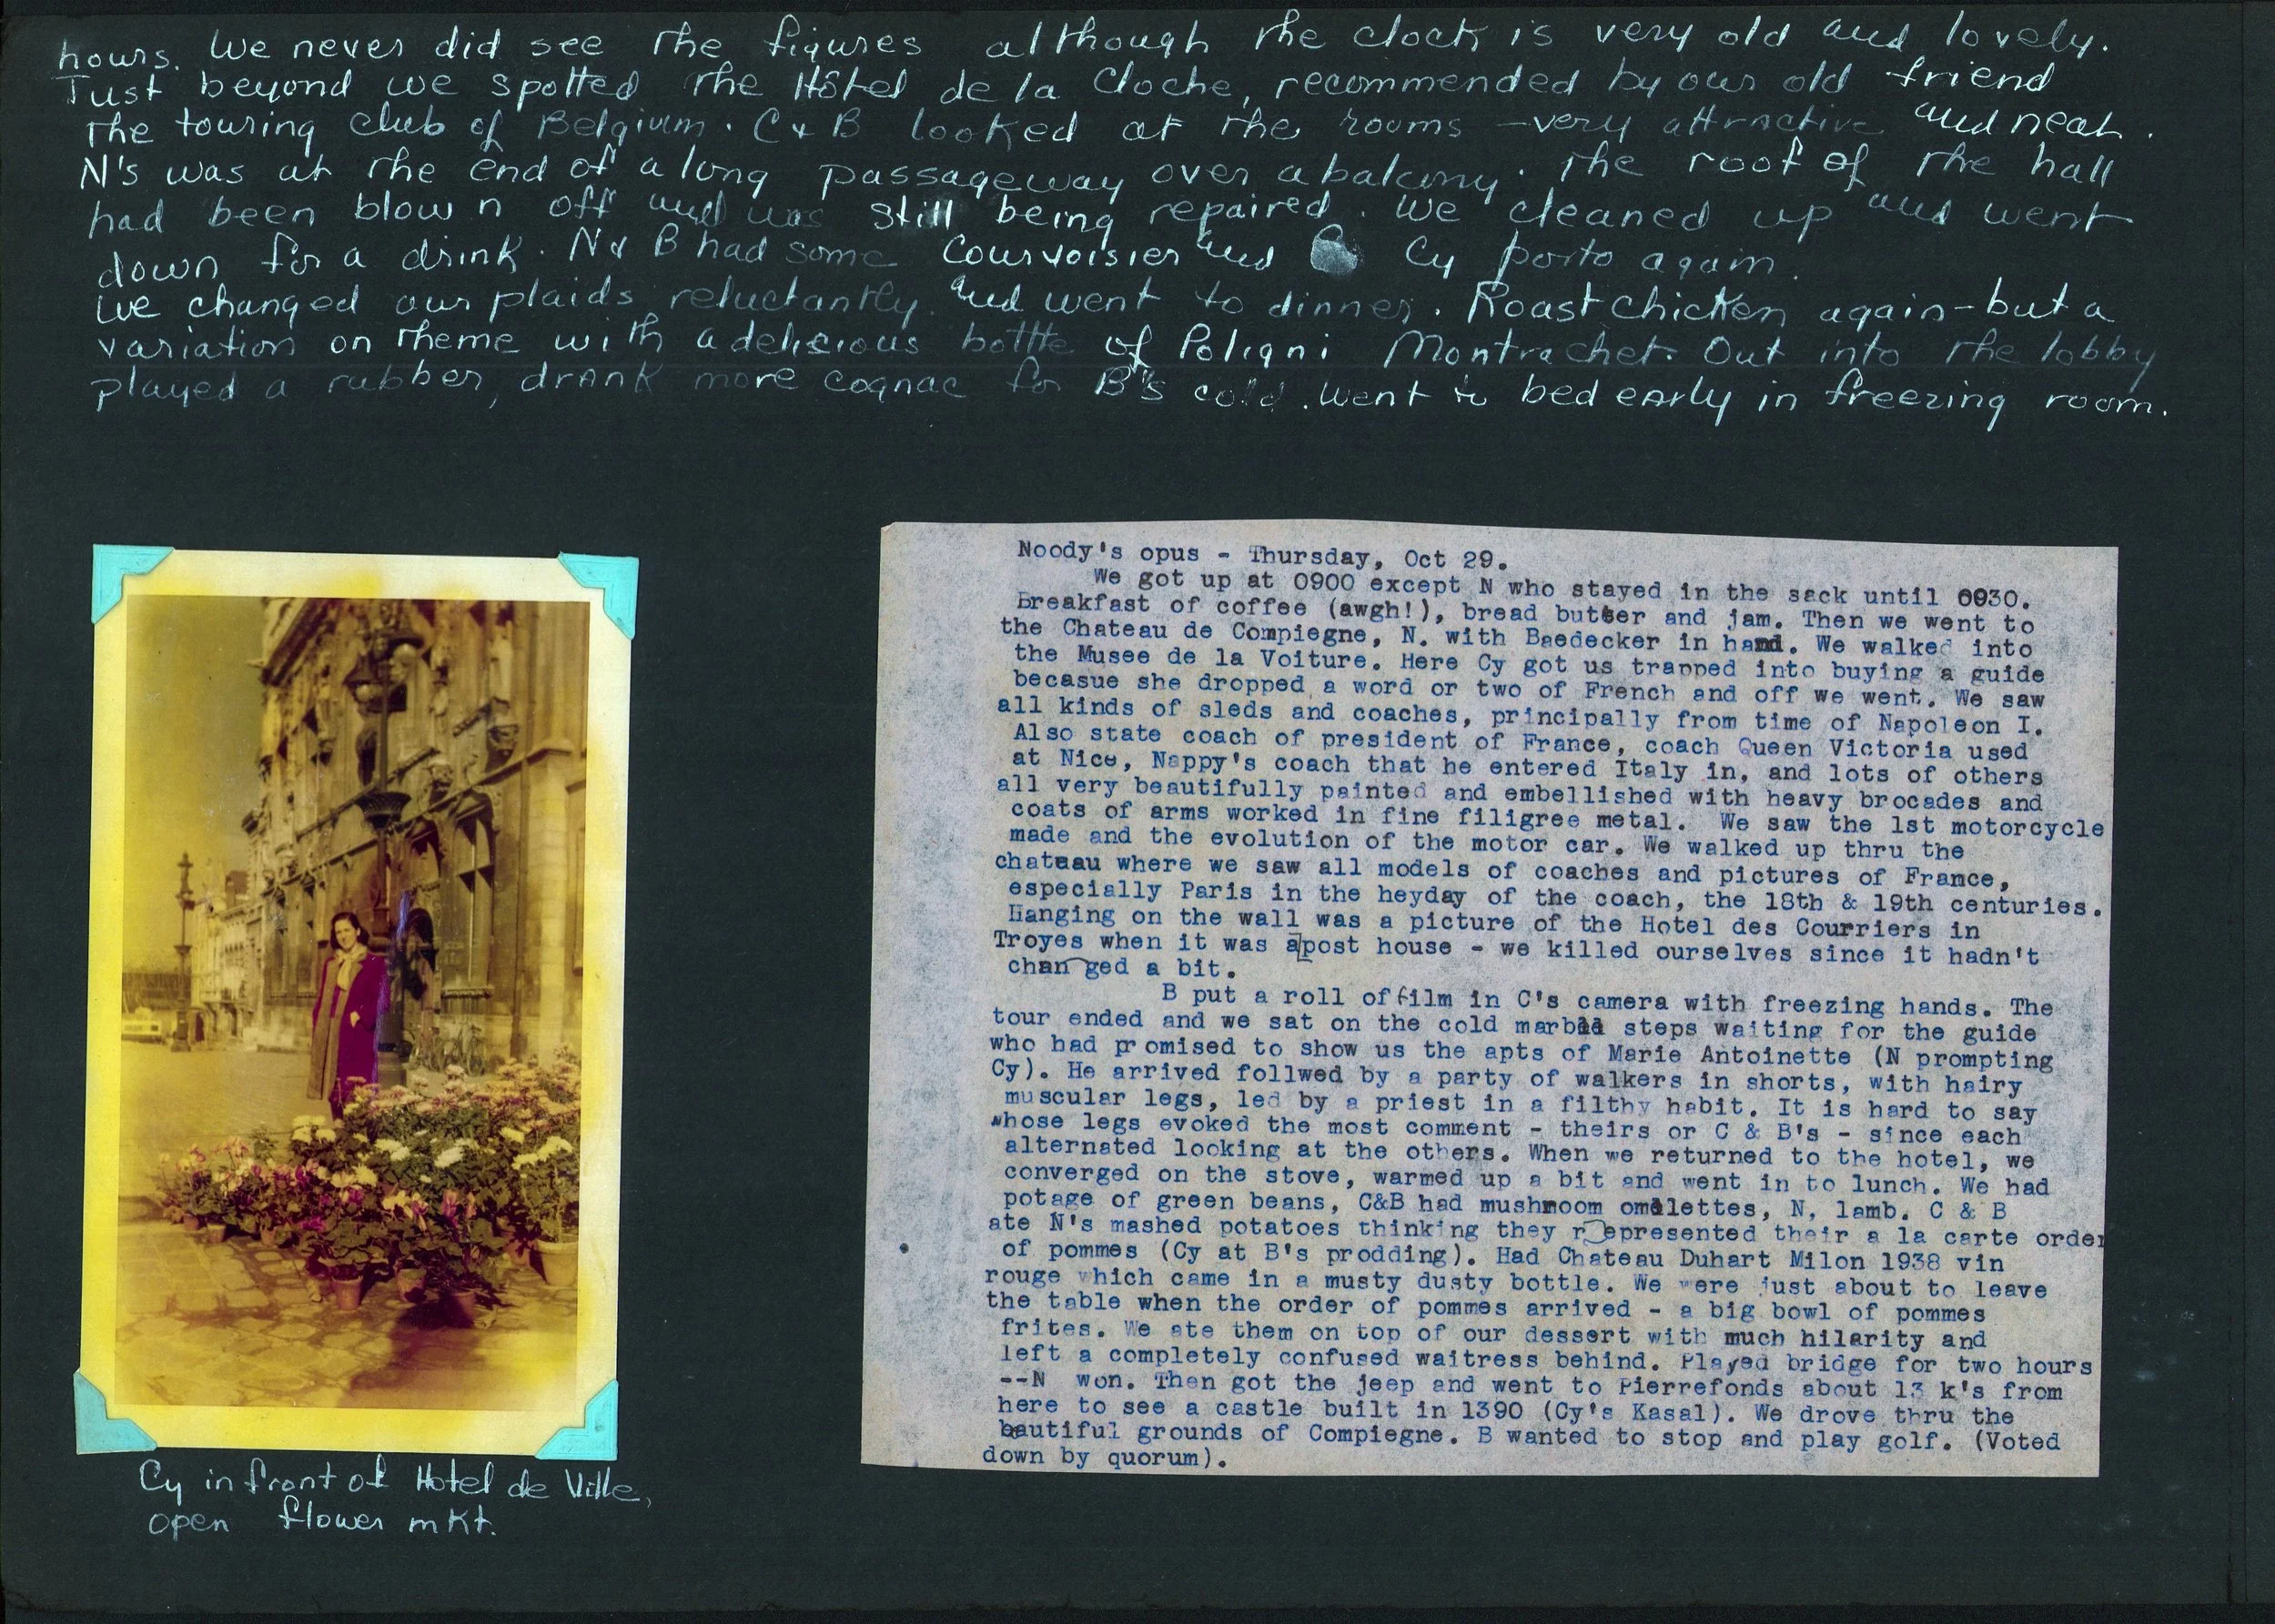 hours. We never did see the figures although the clock is very old and lovely.
Just beyond we spotted the Hôtel de la Cloche, recommended by our old friend
the touring club of Belgium. C & B looked at the rooms – very attractive and neat.
N's was at the end of a long passageway over a balcony. The roof of the hall
had been blown off and was still being repaired. We cleaned up and went
down for a drink. N & B had some Courvoisier and Cy porto again.
We changed our plaids reluctantly and went to dinner. Roast chicken again – but a
variation on theme with a delicious bottle of Poligni Montrachet. Out into the lobby
played a rubber, drank more cognac for B's cold. Went to bed early in freezing room.
Noody's opus - Thursday, Oct 29.
We got up at 0900 except N who stayed in the sack until 0930.
Breakfast of coffee (awgh!), bread butter and jam. Then we went to
the Chateau de Compiegne, N. with Baedecker in hand. We walked into
the Musee de la Voiture. Here Cy got us trapped into buying a guide
becasue she dropped a word or two of French and off we went. We saw
all kinds of sleds and coaches, principally from time of Napoleon I.
Also state coach of president of France, coach Queen Victoria used
at Nice, Nappy's coach that he entered Italy in, and lots of others
all very beautifully painted and embellished with heavy brocades and
coats of arms worked in fine filigree metal. We saw the 1st motorcycle
made and the evolution of the motor car. We walked up thru the
chateau where we saw all models of coaches and pictures of France,
especially Paris in the heyday of the coach, the 18th & 19th centuries.
Hanging on the wall was a picture of the Hotel des Courriers in
Troyes when it was a post house - we killed ourselves since it hadn't
changed a bit.
B put a roll of film in C's camera with freezing hands. The
tour ended and we sat on the cold marble steps waiting for the guide
who had promised to show us the apts of Marie Antoinette (N prompting
Cy). He arrived follwed by a party of walkers in shorts, with hairy
muscular legs, led by a priest in a filthy habit. It is hard to say
whose legs evoked the most comment - theirs or C & B's - since each
alternated looking at the others. When we returned to the hotel, we
converged on the stove, warmed up a bit and went in to lunch. We had
potage of green beans, C&B had mushroom omelettes, N, lamb. C & B
ate N's mashed potatoes thinking they represented their a la carte order
of pommes (Cy at B's prodding). Had Chateau Duhart Milon 1938 vin
rouge which came in a musty dusty bottle. We were just about to leave
the table when the order of pommes arrived - a big bowl of pommes
frites. We ate them on top of our dessert with much hilarity and
left a completely confused waitress behind. Played bridge for two hours
--N won. Then got the jeep and went to Pierrefonds about 13 k's from
here to see a castle built in 1390 (Cy's Kasal). We drove thru the
beautiful grounds of Compiegne. B wanted to stop and play golf. (Voted
down by quorum).
Cy in front of Hotel de Ville,
open flower mkt.